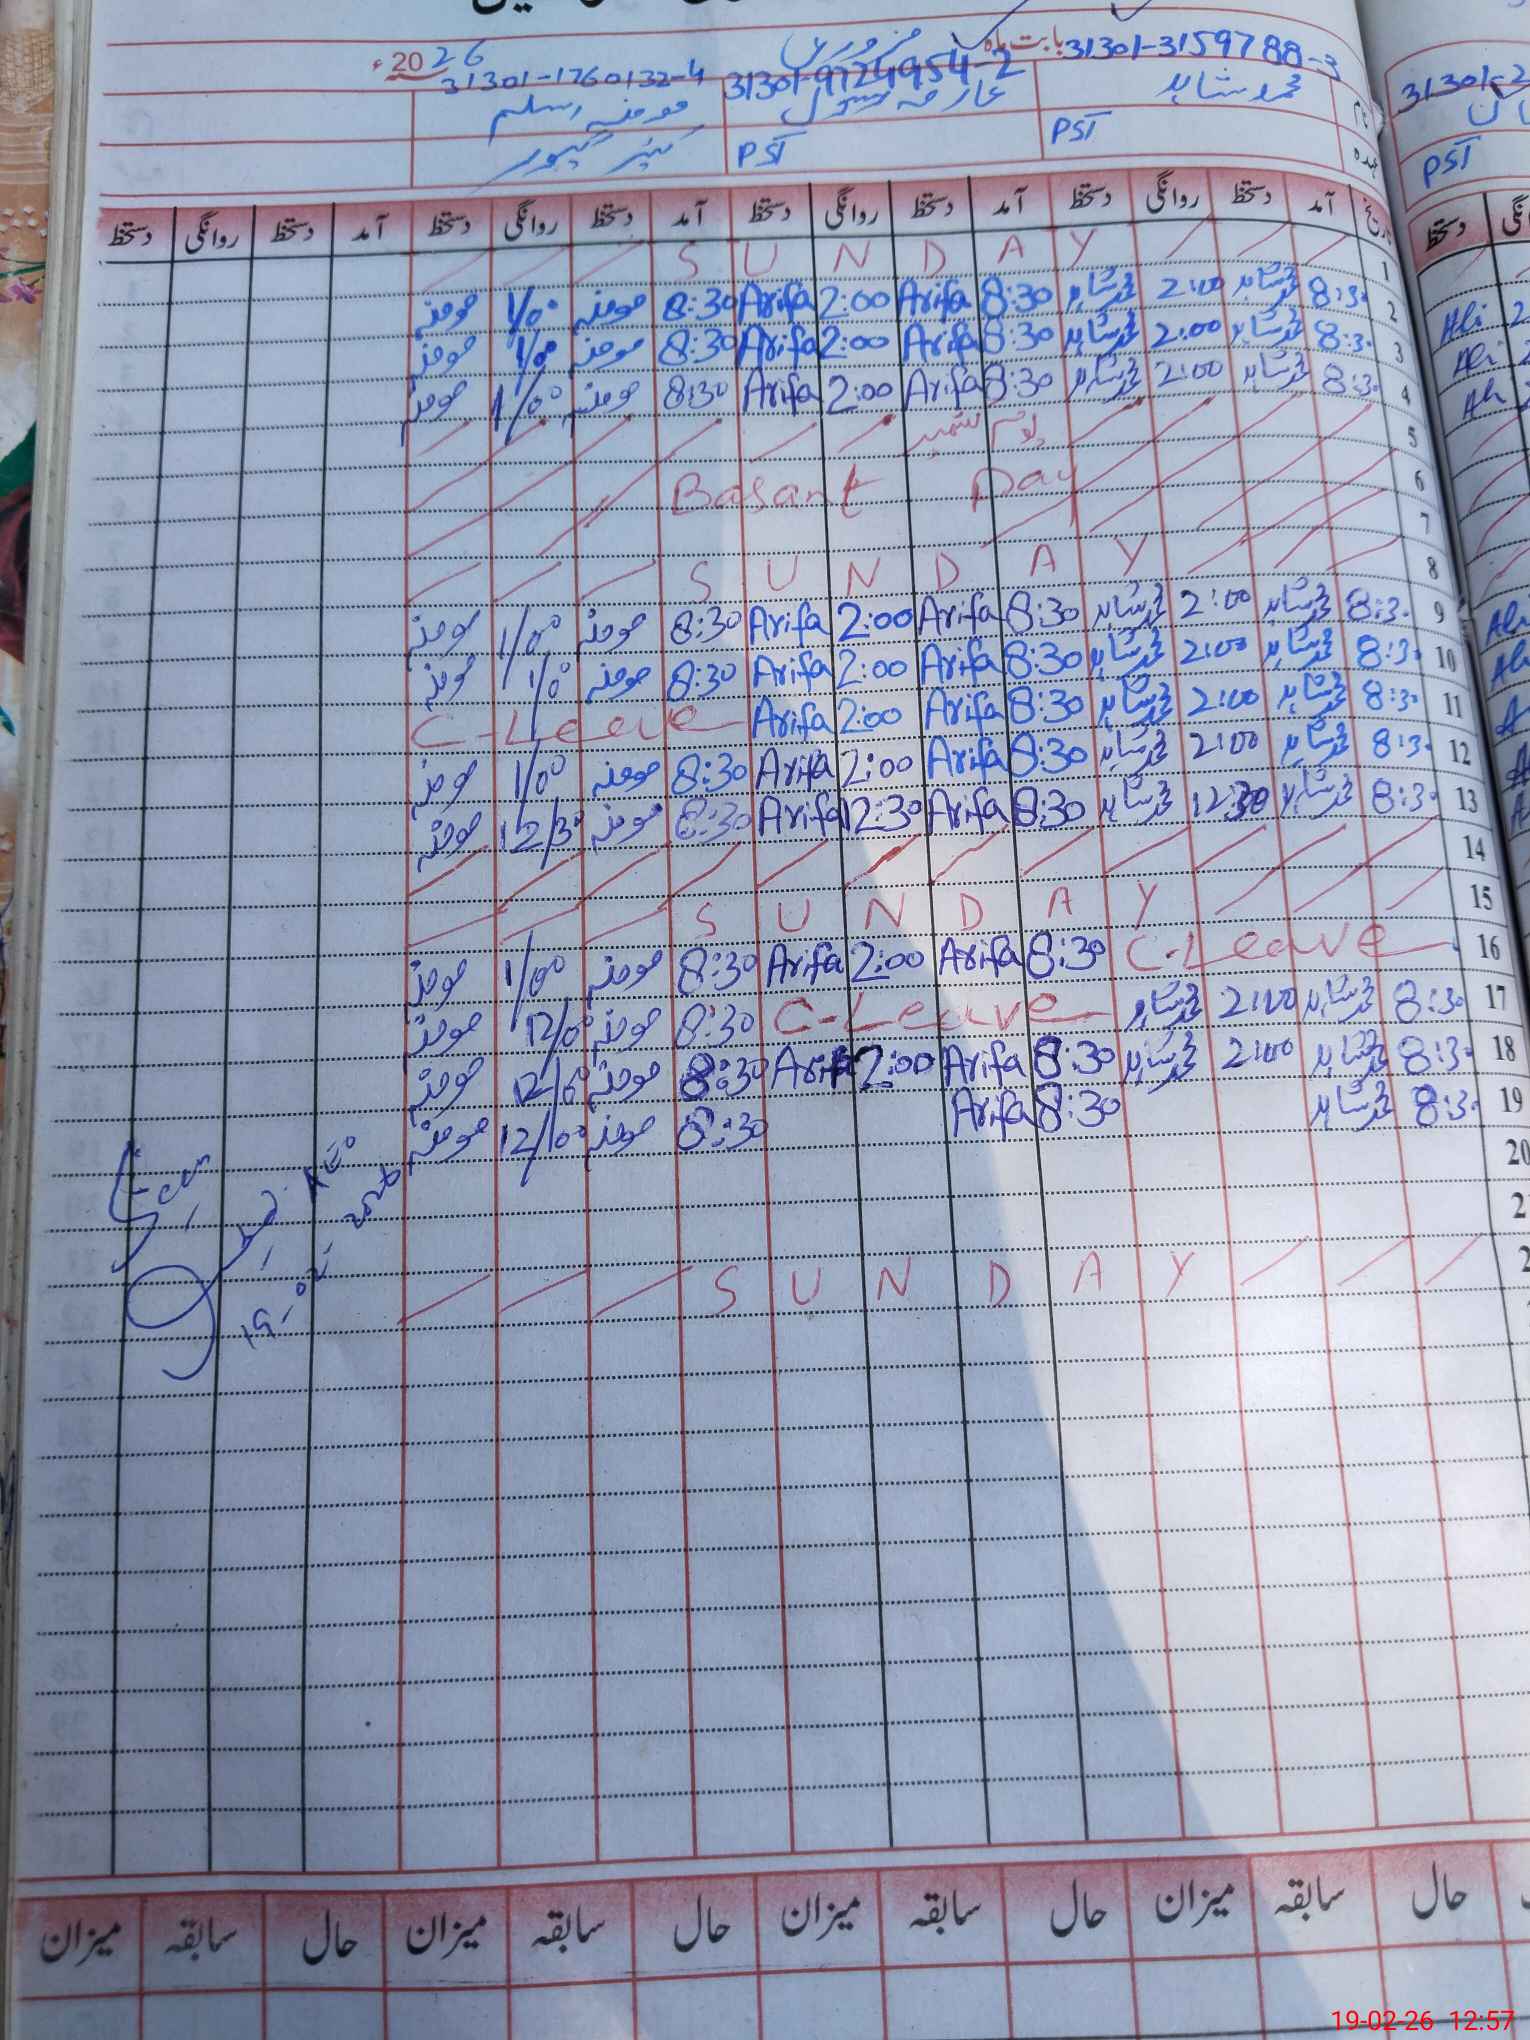 بابت ماہ فروری 2026ء
31301-3159788-3 31301-9724954-2 31301-1760132-4
محمد شاہد عارفہ بتول مومنہ اسلم
عہدہ PST PST کیئر گیور
PST
تاریخ آمد دستخط روانگی دستخط آمد دستخط روانگی دستخط آمد دستخط روانگی دستخط آمد دستخط روانگی دستخط
1 SUNDAY
2 8:30 محمد شاہد 2:00 محمد شاہد 8:30 Arifa 2:00 Arifa 8:30 مومنہ 1/00 مومنہ
3 8:30 محمد شاہد 2:00 محمد شاہد 8:30 Arifa 2:00 Arifa 8:30 مومنہ 1/00 مومنہ
4 8:30 محمد شاہد 2:00 محمد شاہد 8:30 Arifa 2:00 Arifa 8:30 مومنہ 1/00 مومنہ
5 یوم کشمیر
6 Basant Day
7
8 SUNDAY
9 8:30 محمد شاہد 2:00 محمد شاہد 8:30 Arifa 2:00 Arifa 8:30 مومنہ 1/00 مومنہ
10 8:30 محمد شاہد 2:00 محمد شاہد 8:30 Arifa 2:00 Arifa 8:30 مومنہ 1/00 مومنہ
11 8:30 محمد شاہد 2:00 محمد شاہد 8:30 Arifa 2:00 Arifa C-Leave
12 8:30 محمد شاہد 2:00 محمد شاہد 8:30 Arifa 2:00 Arifa 8:30 مومنہ 1/00 مومنہ
13 8:30 محمد شاہد 12:30 محمد شاہد 8:30 Arifa 12:30 Arifa 8:30 مومنہ 12/30 مومنہ
14
15 SUNDAY
16 C-Leave 8:30 Arifa 2:00 Arifa 8:30 مومنہ 1/00 مومنہ
17 8:30 محمد شاہد 2:00 محمد شاہد C-Leave 8:30 مومنہ 12/00 مومنہ
18 8:30 محمد شاہد 2:00 محمد شاہد 8:30 Arifa 2:00 Arifa 8:30 مومنہ 12/00 مومنہ
19 8:30 محمد شاہد 8:30 Arifa 8:30 مومنہ 12/00 مومنہ
20
SUNDAY
حال سابقہ میزان حال سابقہ میزان حال سابقہ میزان
19-02-26 12:57